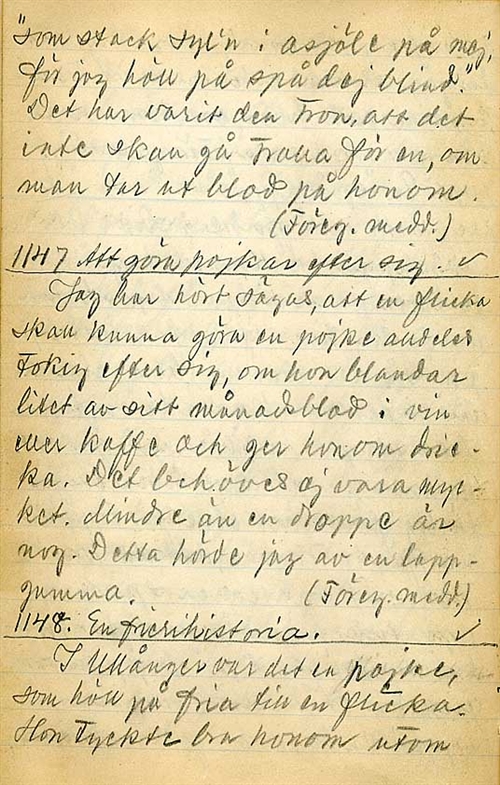 "som stack syl'n i asjöle på mej,
för jag höll på spå dej blind."
Det har varit den tron, att det
inte skall gå trolla för en, om
man tar ut blod på honom.
(Föreg. medd.)
1147 Att göra pojkar efter sig. ✓
Jag har hört sägas, att en flicka
skall kunna göra en pojke alldeles
tokig efter sig, om hon blandar
litet av sitt månadsblod i vin
eller kaffe och ger honom dric-
ka. Det behöves ej vara myc-
ket. Mindre än en droppe är
nog. Detta hörde jag av en lapp-
gumma. (Föreg. medd.)
1148. En frierihistoria. ✓
I Ullånger var det en pojke,
som höll på fria till en flicka.
Hon tyckte bra honom utom